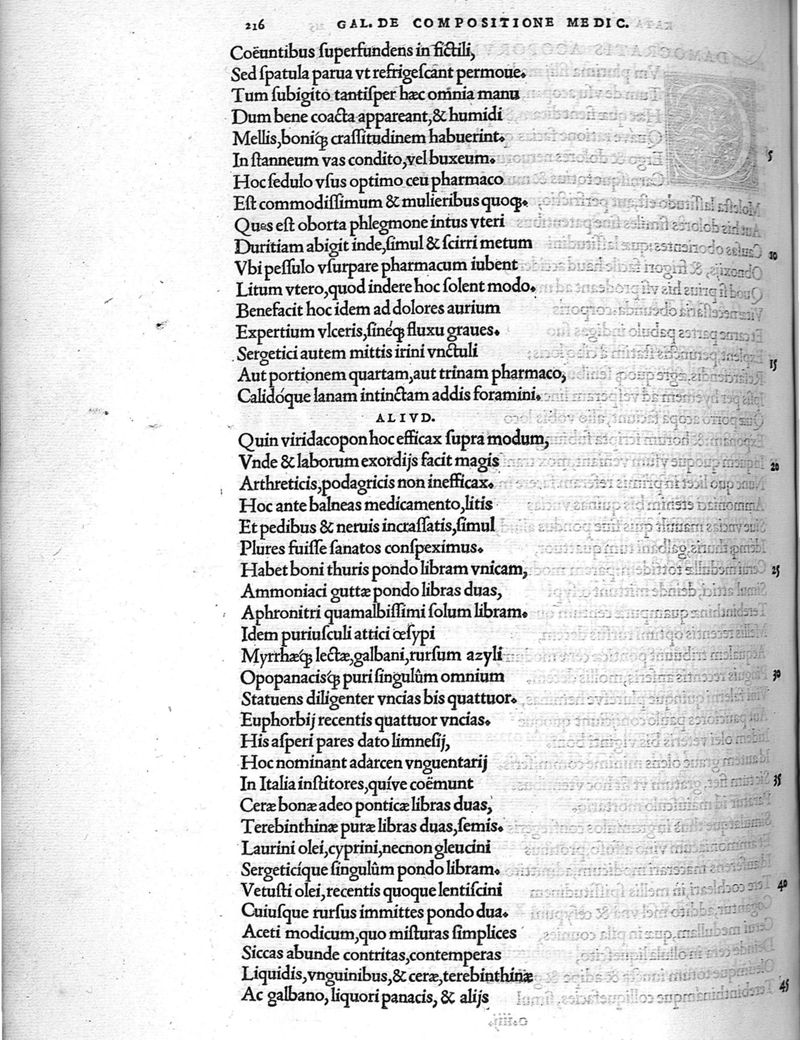 216 GAL. DE COMPOSITIONE MEDIC.
Coëuntibus ſuperfundens in fictili,
Sed ſpatula parua vt refrigeſcant permoue.
Tum ſubigito tantiſper hæc omnia manu
Dum bene coacta appareant, & humidi
Mellis, boniq́; craſſitudinem habuerint.
In ſtanneum vas condito, vel buxeum. 5
Hoc ſedulo vſus optimo ceu pharmaco
Eſt commodiſſimum & mulieribus quoq;.
Ques eſt oborta phlegmone intus vteri
Duritiam abigit inde, ſimul & ſcirri metum 10
Vbi peſſulo vſurpare pharmacum iubent
Litum vtero, quod indere hoc ſolent modo.
Benefacit hoc idem ad dolores aurium
Expertium vlceris, ſinéq; fluxu graues.
Sergetici autem mittis irini vnctuli 15
Aut portionem quartam, aut trinam pharmaco,
Calidóque lanam intinctam addis foramini.
ALIVD.
Quin viridacopon hoc efficax ſupra modum,
Vnde & laborum exordijs facit magis 20
Arthreticis, podagricis non inefficax.
Hoc ante balneas medicamento, litis
Et pedibus & neruis incraſſatis, ſimul
Plures fuiſſe ſanatos conſpeximus.
Habet boni thuris pondo libram vnicam, 25
Ammoniaci guttæ pondo libras duas,
Aphronitri quamalbiſſimi ſolum libram.
Idem puriuſculi attici œſypi
Myrrhæq́; lectæ, galbani, rurſum azyli
Opopanacisq́; puri ſingulûm omnium 30
Statuens diligenter vncias bis quattuor.
Euphorbij recentis quattuor vncias.
His aſperi pares dato limneſij,
Hoc nominant adarcen vnguentarij
In Italia inſtitores, quíve coëmunt 35
Ceræ bonæ adeo ponticæ libras duas,
Terebinthinæ puræ libras duas, ſemis.
Laurini olei, cyprini, necnon gleucini
Sergeticíque ſingulûm pondo libram.
Vetuſti olei, recentis quoque lentiſcini 40
Cuiuſque rurſus immittes pondo dua.
Aceti modicum, quo miſturas ſimplices
Siccas abunde contritas, contemperas
Liquidis, vnguinibus, & ceræ, terebinthinæ
Ac galbano, liquori panacis, & alijs 45